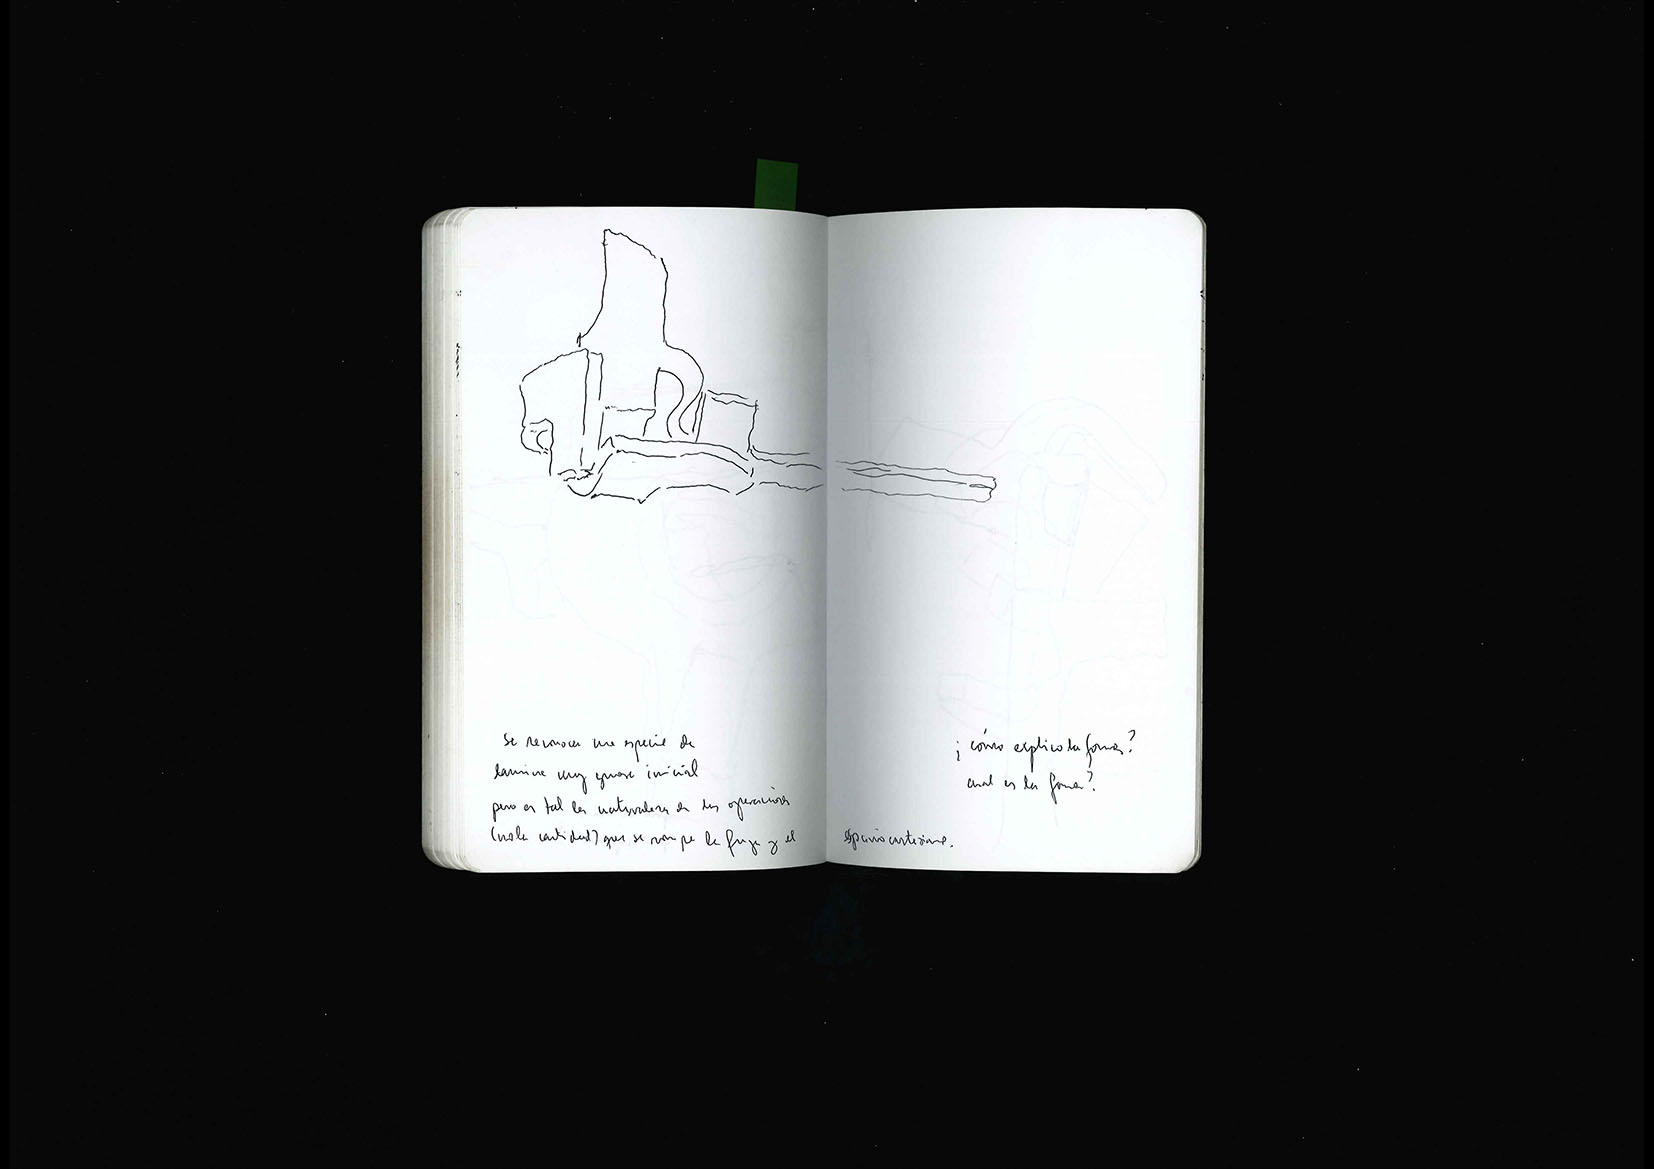 se reconoce una especie de
lamina muy gruesa inicial
pero es tal la naturaleza de las operaciones
(no la cantidad) que se rompe la fuga y el
espacio cartesiano.
¿cómo explico la forma?
cual es la forma?